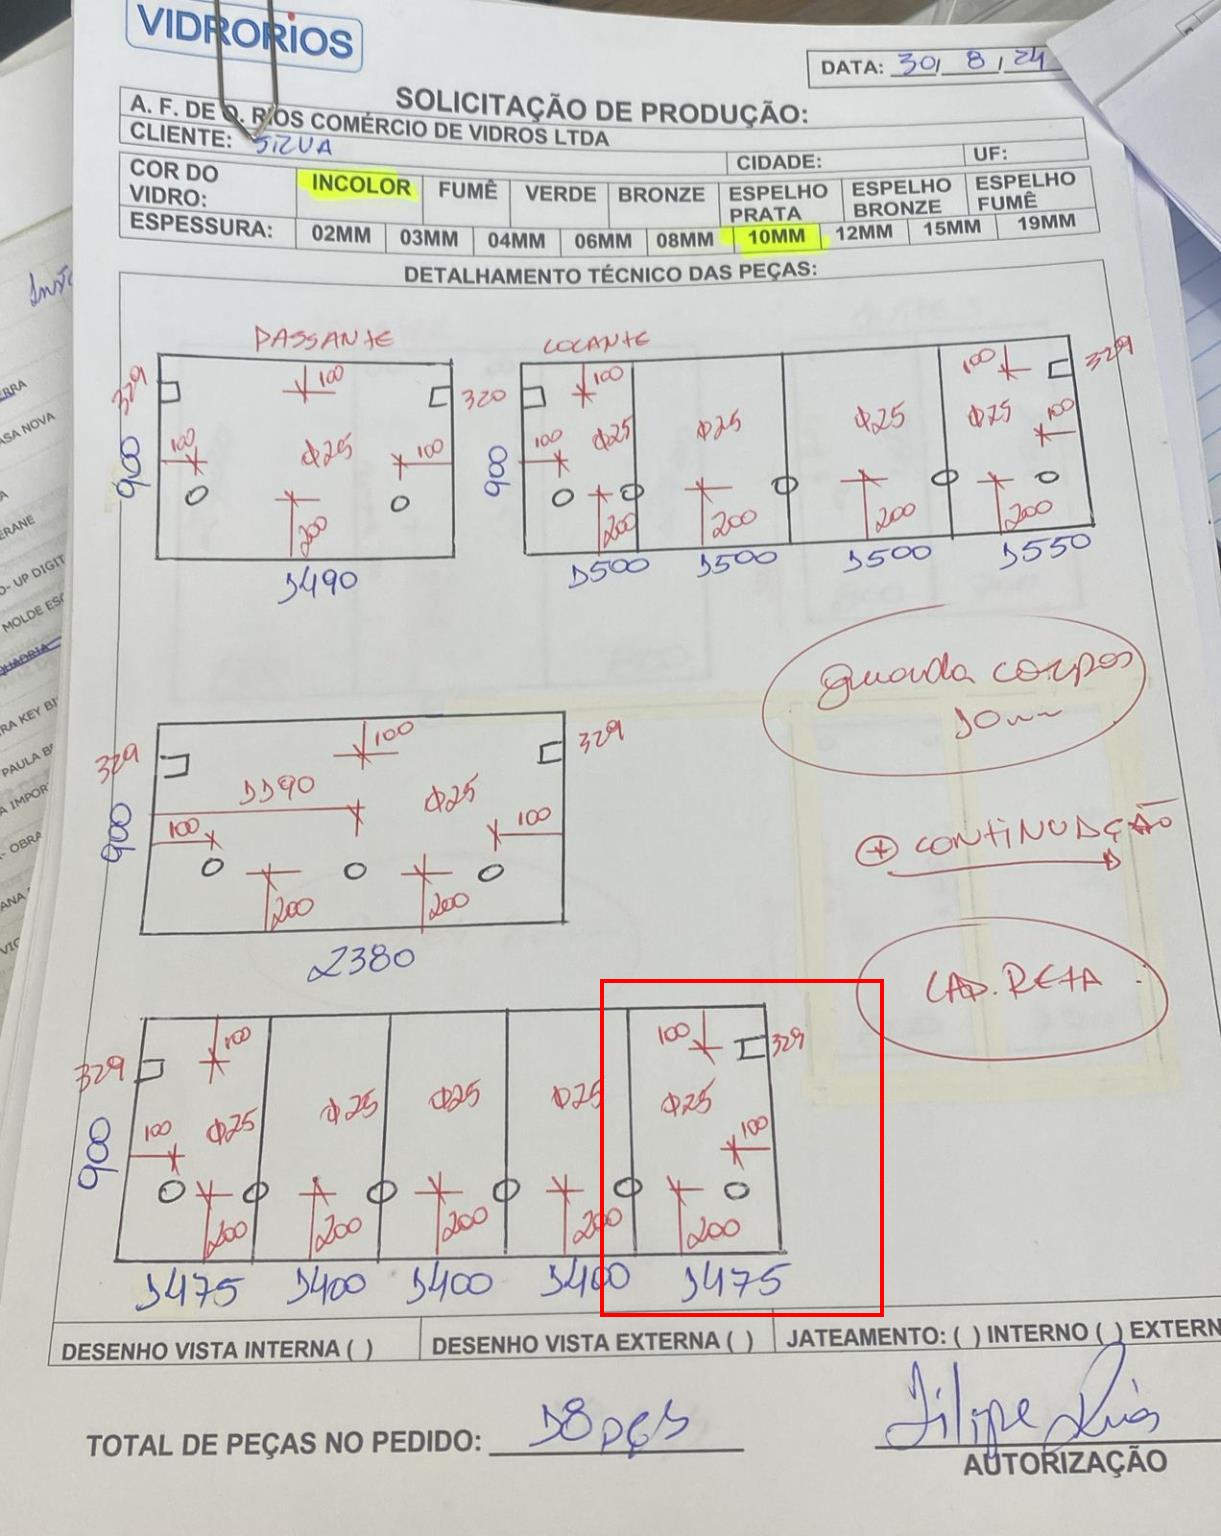 VIDRORIOS
DATA: 30/ 8 / 24
SOLICITAÇÃO DE PRODUÇÃO:
A. F. DE O. RIOS COMÉRCIO DE VIDROS LTDA
CLIENTE: SILVA
CIDADE: UF:
COR DO VIDRO: INCOLOR FUMÊ VERDE BRONZE ESPELHO PRATA ESPELHO BRONZE ESPELHO FUMÊ
ESPESSURA: 02MM 03MM 04MM 06MM 08MM 10MM 12MM 15MM 19MM
DETALHAMENTO TÉCNICO DAS PEÇAS:
PASSANTE
329 100 320
100 Φ25 100
900
200
1490
COLANTE
100 100 329
100 Φ25 Φ25 Φ25 Φ25 100
900
200 200 200 200
1500 1500 1500 1550
guarda corpos
10mm
329 100 329
1190 Φ25
100 100
900
200 200
2380
+ CONTINUAÇÃO
LAP. RETA
329 100 100 329
100 Φ25 Φ25 Φ25 Φ25 Φ25 100
900
200 200 200 200 200
1475 1400 1400 1400 1475
DESENHO VISTA INTERNA ( ) DESENHO VISTA EXTERNA ( ) JATEAMENTO: ( ) INTERNO ( ) EXTERN
TOTAL DE PEÇAS NO PEDIDO: 18 pçs
Filipe Rios
AUTORIZAÇÃO
ERRA
ASA NOVA
ERANE
O- UP DIGIT
MOLDE ES
QUADRIA
RA KEY BI
PAULA B
A IMPOR
- OBRA
ANA